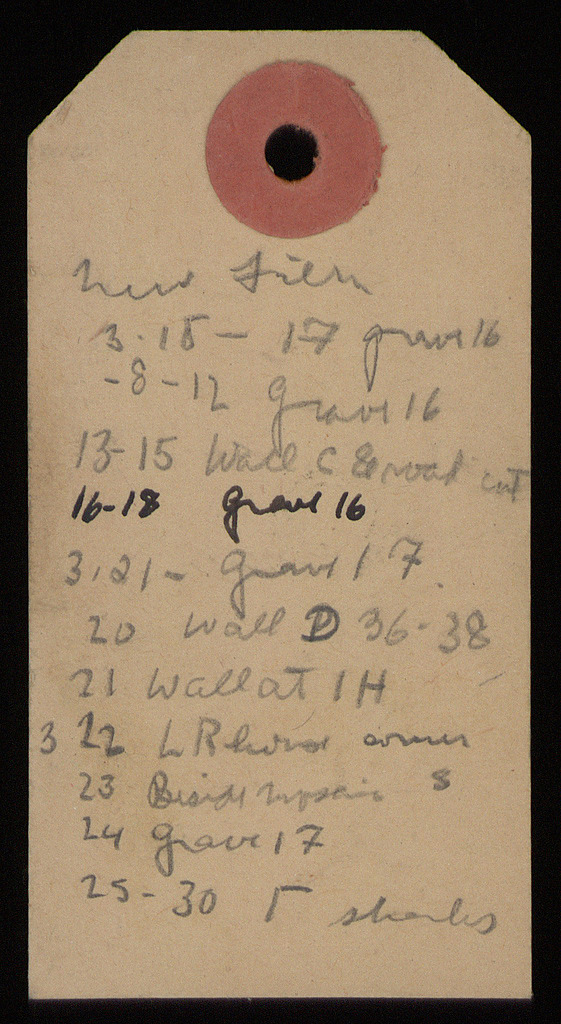 New Film
3.18 - 17 grave 16
-8-12 Grave 16
13-15 Wall C & road cut
16-18 grave 16
3.21 - Grave 17
20 Wall D 36-38
21 Wall at 1H
3 22 L R corner
23 Beside 8
24 grave 17
25-30 sherds